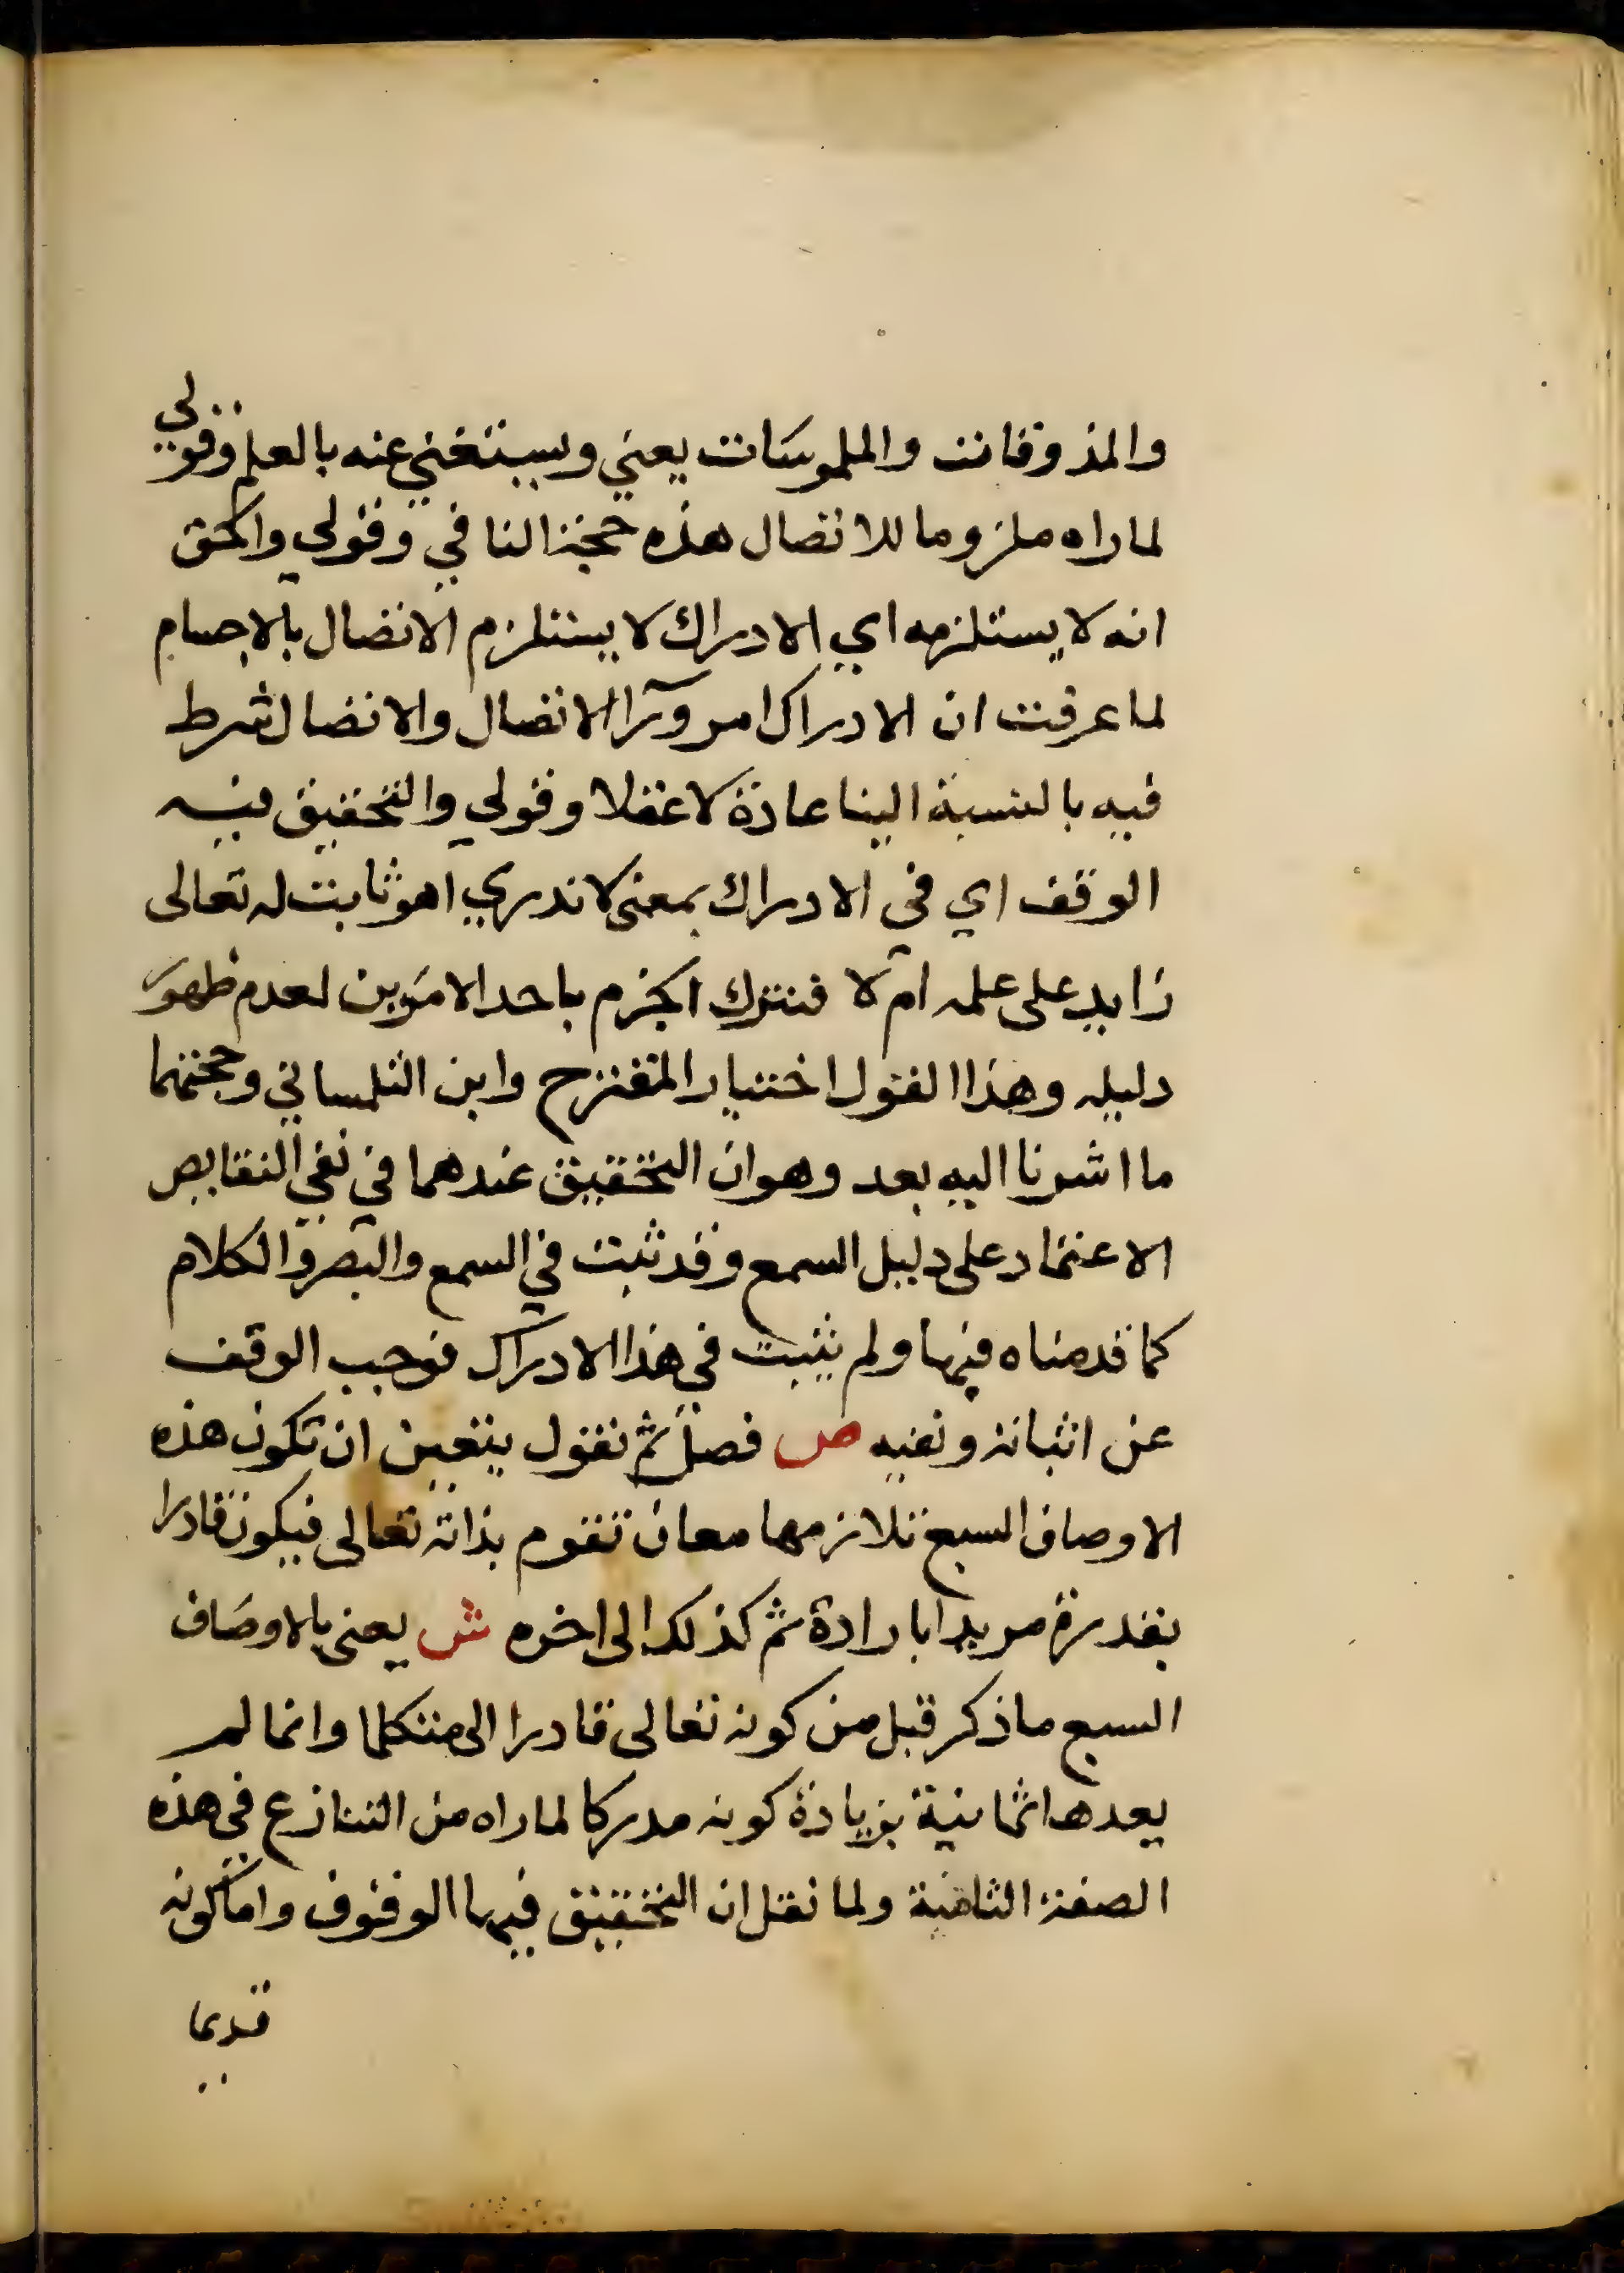 والمذوقات والملموسات يعني ويستغني عنه بالعلم وقولي
لما راه ملزوما للاتصال هذه حجة النافي وقولي والحق
انه لا يستلزمه اي الادراك لا يستلزم الاتصال بالاجسام
لما عرفت ان الادراك امر ورآ الاتصال والاتصال شرط
فيه بالنسبة الينا عادة لا عقلا وقولي والتحقيق فيه
الوقف اي في الادراك بمعنى لا ندري اهو ثابت له تعالى
زايد على علمه ام لا فنترك الجزم باحد الامرين لعدم ظهور
دليله وهذا القول اختيار المقترح وابن التلمساني وحجتهما
ما اشرنا اليه بعد وهو ان التحقيق عندهما في نفي النقايص
الاعتماد على دليل السمع وقد ثبت في السمع والبصر والكلام
كما قدمناه فيها ولم يثبت في هذا الادراك فوجب الوقف
عن اثباته ونفيه ص فصل ثم نقول يتعين ان تكون هذه
الاوصاف السبع تلازمها معان تقوم بذاته تعالى فيكون قادرا
بقدرة مريدا بارادة ثم كذلك الى اخره ش يعني بالاوصاف
السبع ما ذكر قبل من كونه تعالى قادرا الى متكلما وانما لم
يعدها ثمانية بزيادة كونه مدركا لما راه من التنازع في هذه
الصفة الثامنة ولما نقل ان التحقيق فيها الوقوف واما كونه
قديما